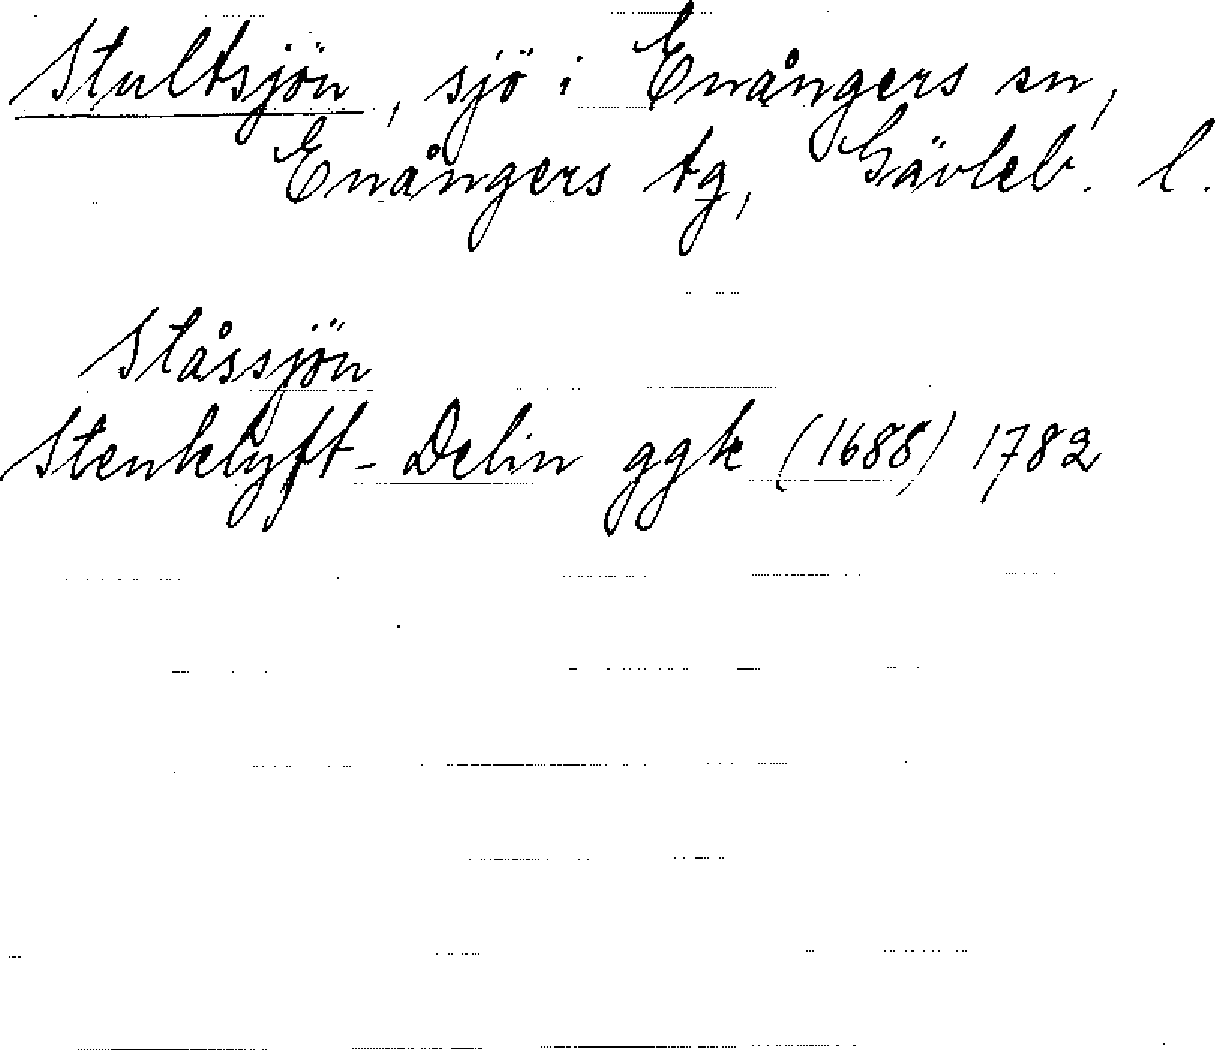 Stultsjön, sjö i Enångers sn,
Enångers tg, Gävleb. l.
Ståssjön
Stenklyft-Delin ggk (1688) 1782